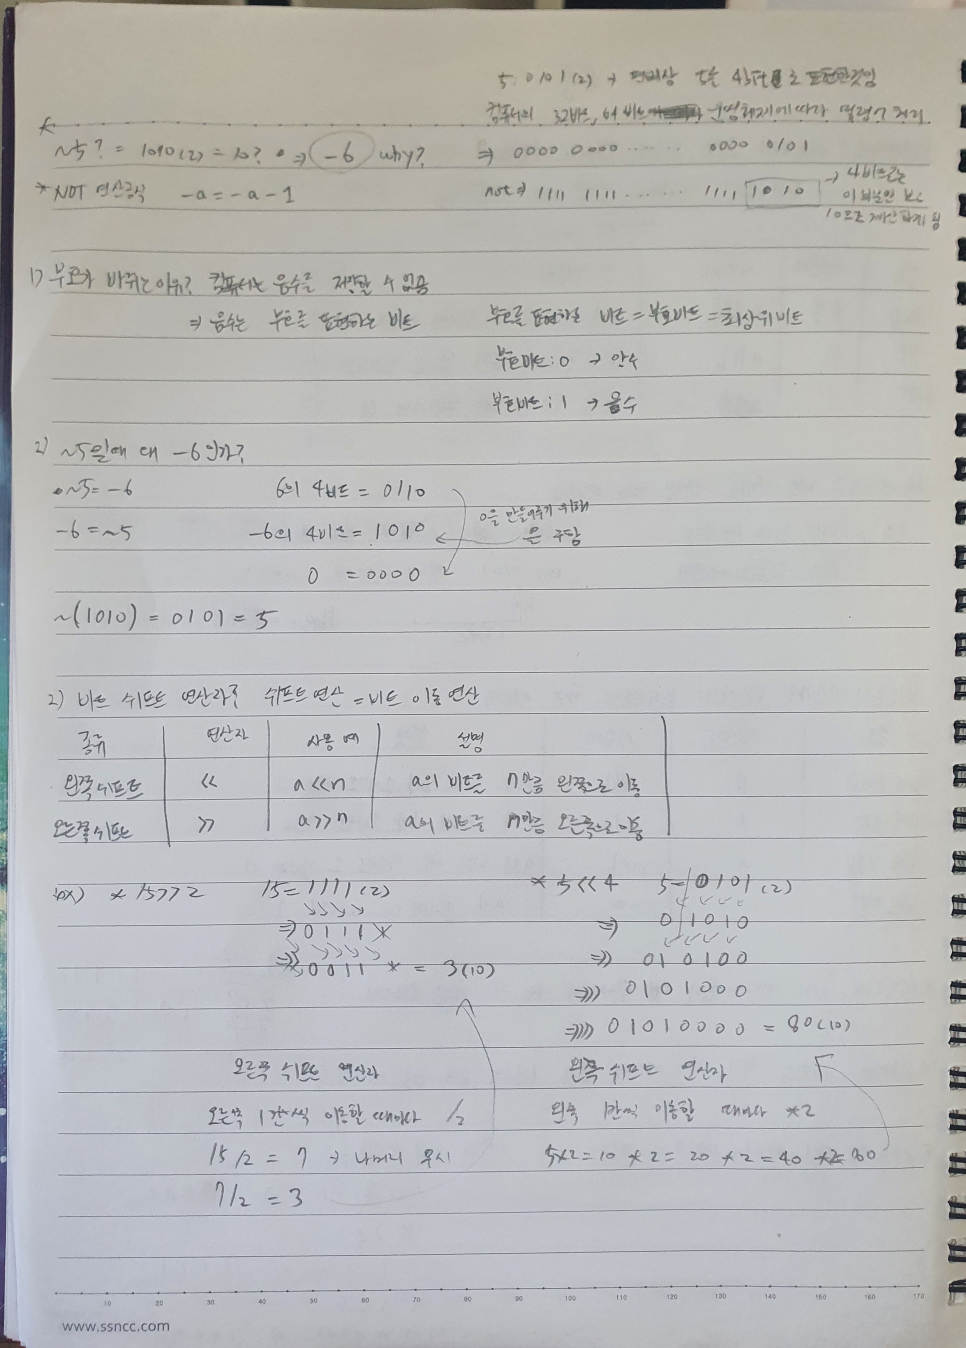 5: 0101(2) → 편의상 5을 4비트로 표현한것임
컴퓨터의 32비트, 64비트 운영체제에따라 메모리 처리
~5? = 1010(2) = 10? ⇒ -6 why?
⇒ 0000 0000 ...... 0000 0101
*NOT 연산공식 -a = -a - 1
not ⇒ 1111 1111 ...... 1111 1010
→ 4비트로는
10으로 계산하게 됨
1) 부호가 바뀌는이유? 컴퓨터는 음수를 저장할 수 없음
⇒ 음수는 부호를 표현하는 비트
부호를 표현하는 비트 = 부호비트 = 최상위비트
부호비트: 0 → 양수
부호비트: 1 → 음수
2) ~5일때 대 -6인가?
•~5 = -6
6의 4비트 = 0110
-6 = ~5
-6의 4비트 = 1010
0을 만들어주기 위해
은 구함
0 = 0000
~(1010) = 0101 = 5
2) 비트 쉬프트 연산자? 쉬프트연산 = 비트 이동 연산
종류 연산자 사용 예 설명
왼쪽쉬프트 << a<<n a의 비트를 n만큼 왼쪽으로 이동
오른쪽쉬프트 >> a>>n a의 비트를 n만큼 오른쪽으로이동
ex) * 15>>2 15 = 1111(2)
⇒ 0111 *
⇒ 0011 * = 3(10)
* 5<<4 5 = 0101(2)
⇒ 01010
⇒ 010100
⇒ 0101000
⇒ 01010000 = 80(10)
오른쪽 쉬프트 연산자
오른쪽 1칸씩 이동할 때마다 /2
15/2 = 7 → 나머지 무시
7/2 = 3
왼쪽 쉬프트 연산자
왼쪽 1칸씩 이동할 때마다 *2
5*2 = 10 *2 = 20 *2 = 40 *2 = 80
10 20 30 40 50 60 70 80 90 100 110 120 130 140 150 160 170
www.ssncc.com